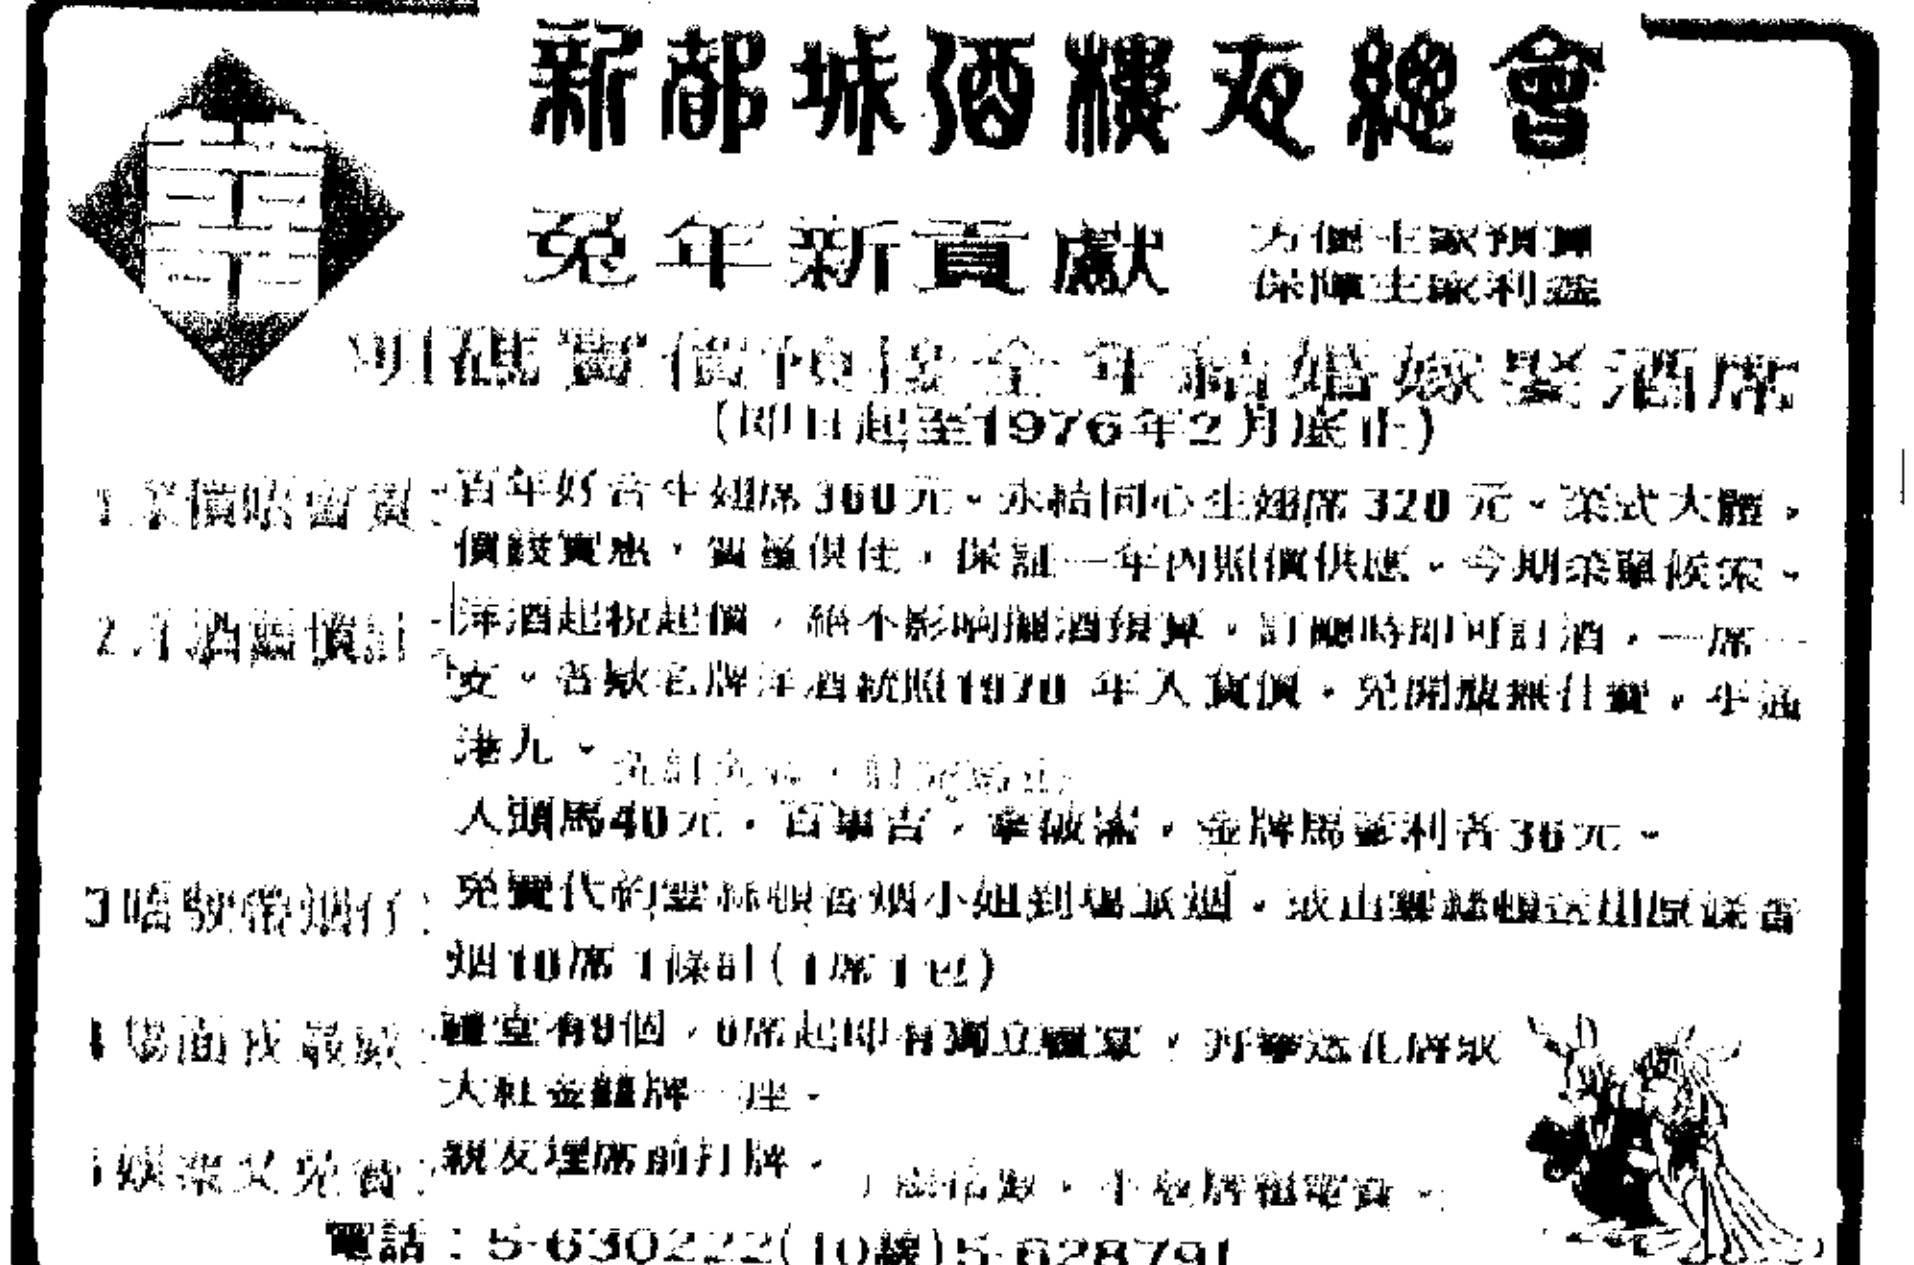 新都城酒樓夜總會
兔年新貢獻
方便主家預算
保障主家利益
明碼實價預接全年結婚嫁娶酒席
(即日起至1976年2月底止)
1 菜價唔會貴：百年好合生翅席360元。永結同心生翅席320元。菜式大體，
價錢實惠，質量俱佳，保証一年內照價供應。今期菜單候索。
2 洋酒 預計：洋酒起稅起價，絕不影响擺酒預算，訂廳時即可訂酒，一席一
支。各欵名牌洋酒統照1970年入貨價，免開瓶無什費，平通
港九。
人頭馬40元，百事吉，拿破崙，金牌馬爹利各36元。
3 唔駛帶烟仔：免費代約雲絲頓香烟小姐到場派烟，或由雲絲頓送出原條香
烟10席1條計(1席1包)
場面夠嚴威：禮堂有9個，6席起即有獨立禮堂，
大紅金 牌一座。
娛樂又免費：親友埋席前打牌，
電話：5-630222(10線)5-628791